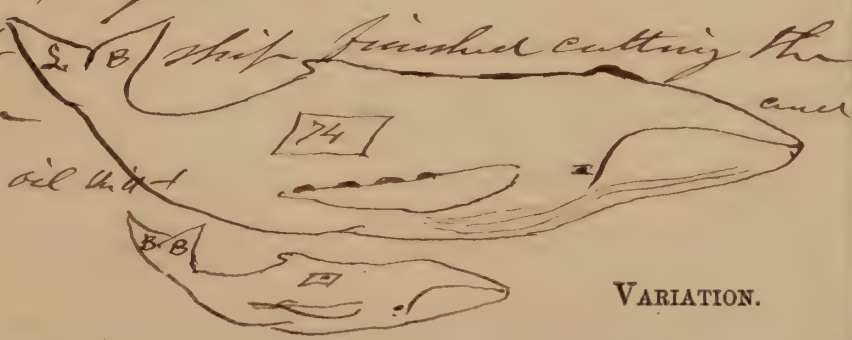 ship finished cutting the
S B
and
74
oil
B B
VARIATION.